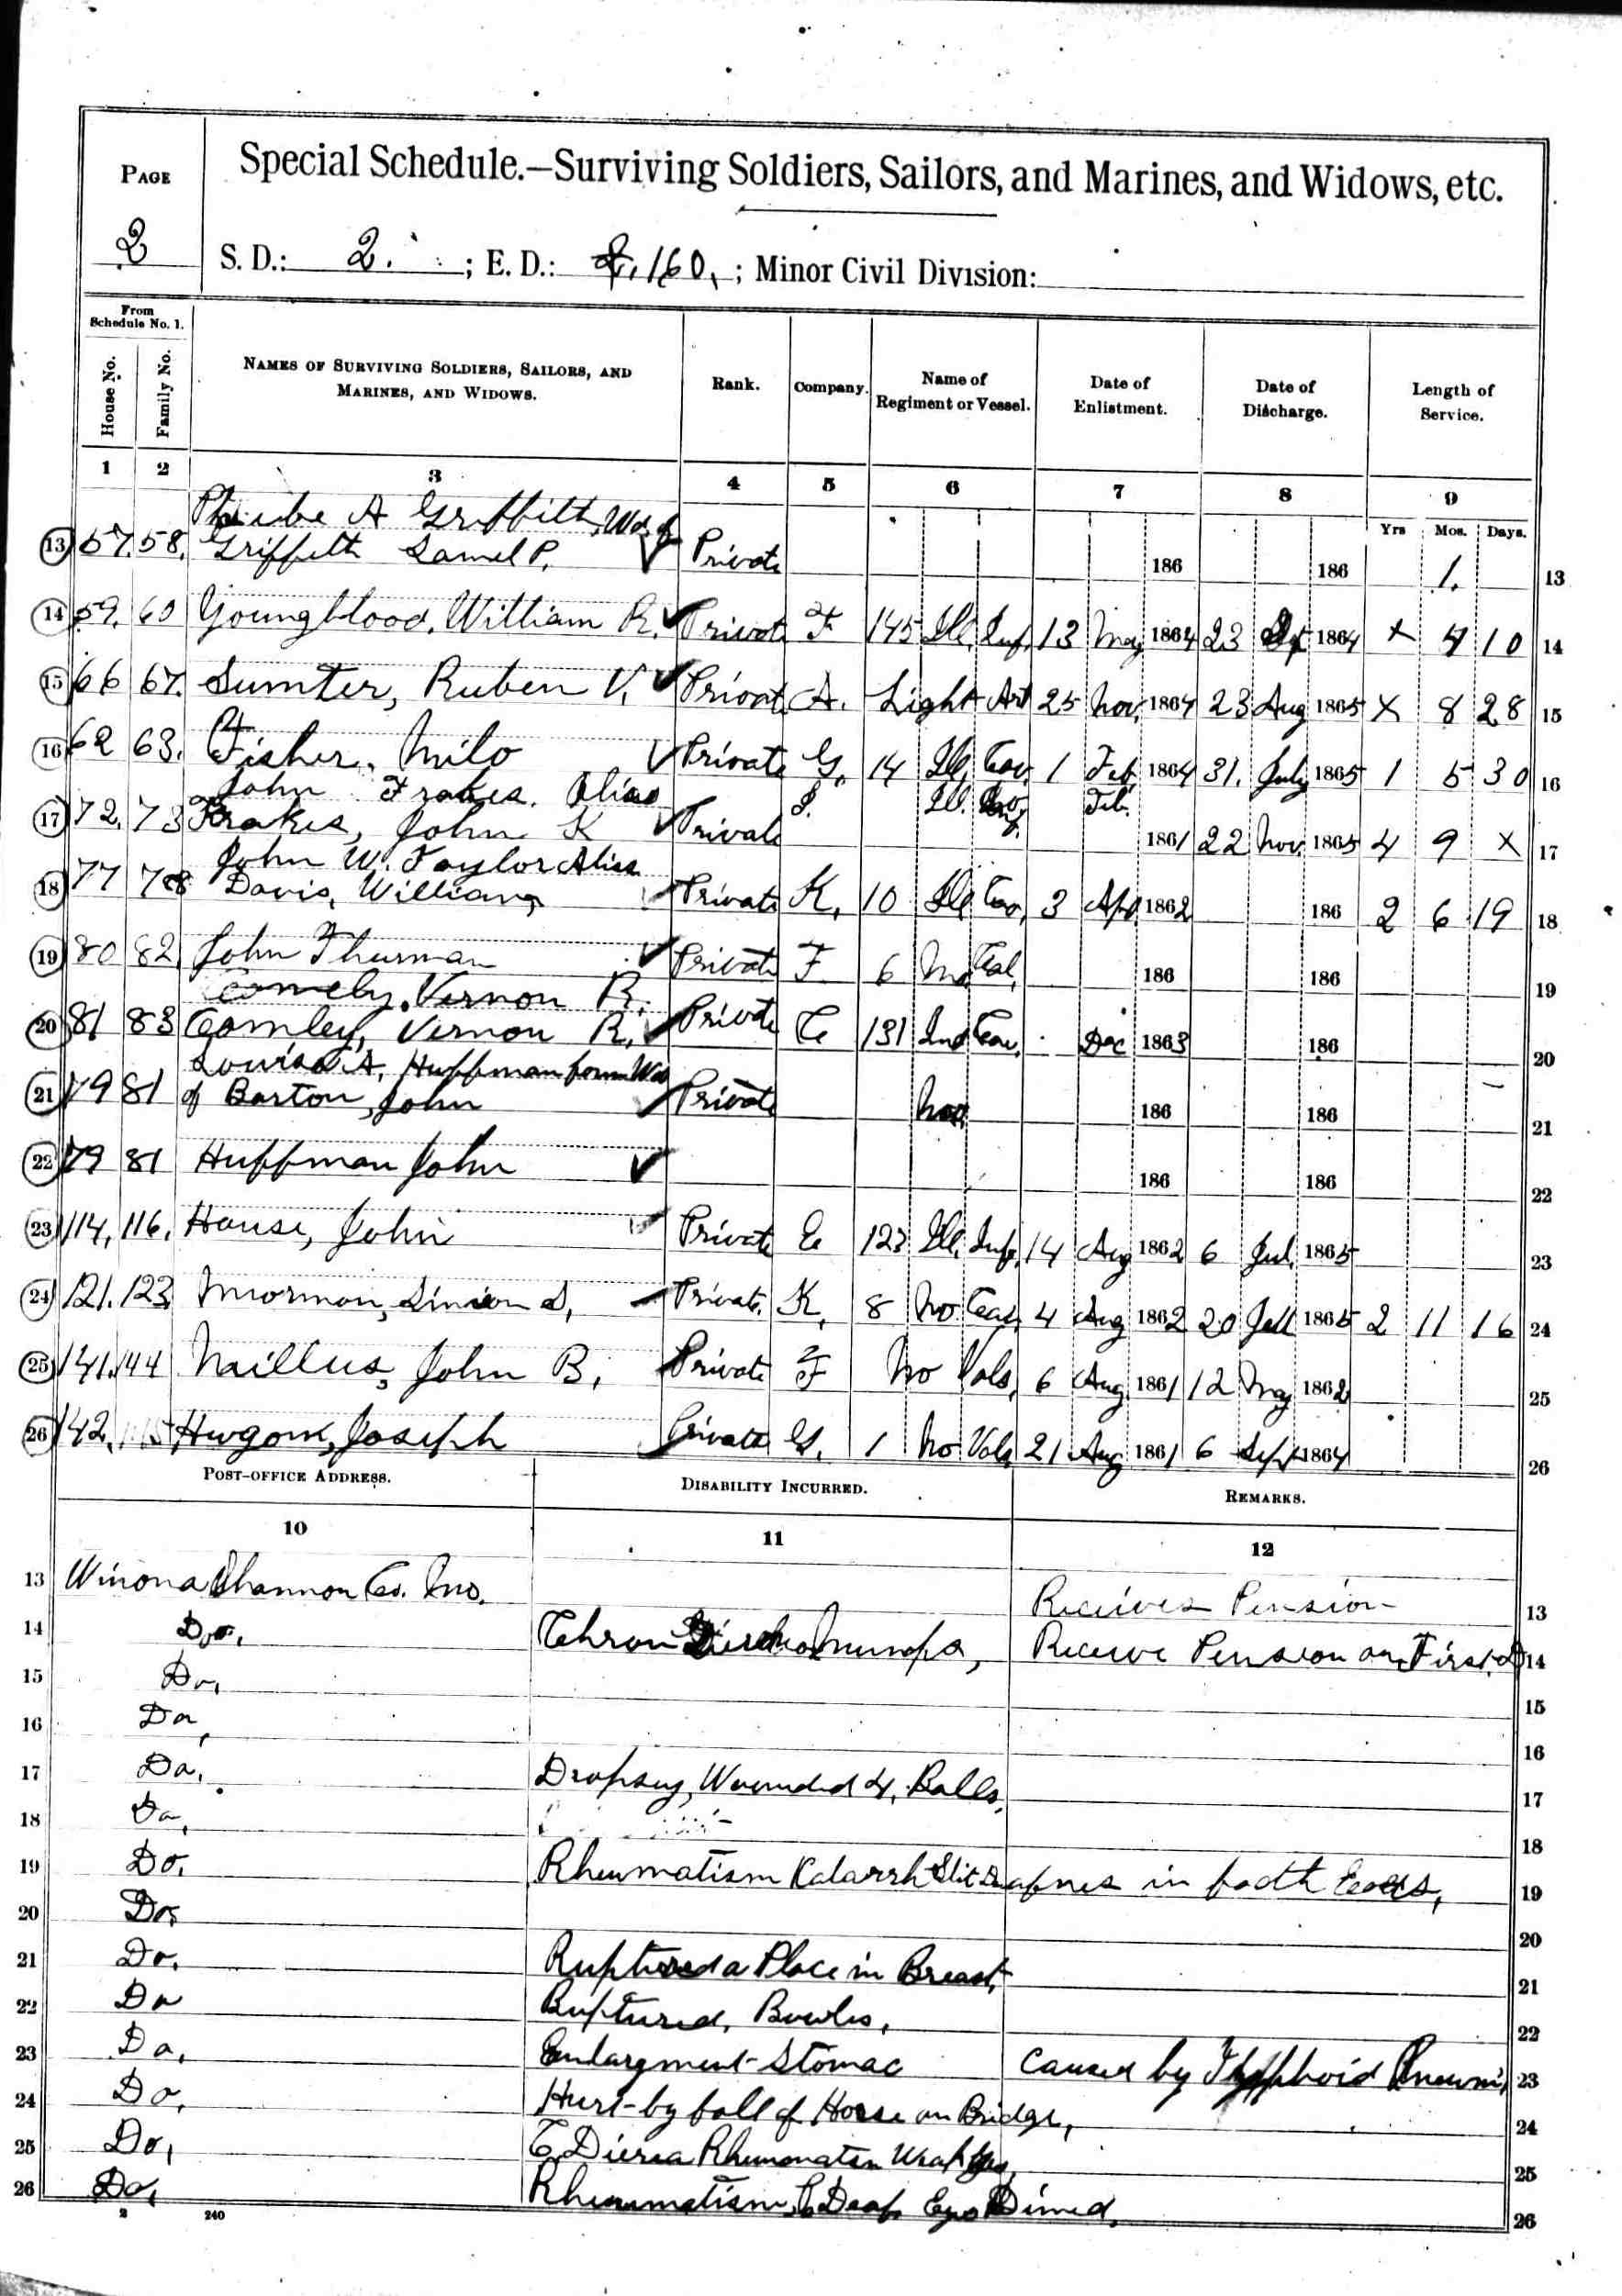 Special Schedule.—Surviving Soldiers, Sailors, and Marines, and Widows, etc.
PAGE
2
S. D.: 2. ; E. D.: 160. ; Minor Civil Division:
From Schedule No. 1.
House No. Family No. NAMES OF SURVIVING SOLDIERS, SAILORS, AND MARINES, AND WIDOWS. Rank. Company. Name of Regiment or Vessel. Date of Enlistment. Date of Discharge. Length of Service.
1 2 3 4 5 6 7 8 9
Yrs Mos. Days.
Phoebe A Griffith, Wd. of
13 57. 58. Griffith Samel P. Private 186 186 1. 13
14 59. 60 Youngblood, William R. Private F 145 Ill. Inf. 13 May 1864 23 1864 x 4 10 14
15 66 67. Sumter, Ruben V. Private A. Light Art 25 Nov. 1864 23 Aug 1865 x 8 28 15
16 62 63. Fisher, Milo Private G. 14 Ill. Cav. 1 Feb 1864 31. July 1865 1 5 30 16
John Frakes. Alias
17 72. 73 Frakes, John K Private Ill. Feb. 1861 22 Nov. 1865 4 9 x 17
John W. Taylor Alias
18 77 78 Davis, William Private K. 10 Ill Cav. 3 Apl 1862 186 2 6 19 18
19 80 82 John Thurman Private F 6 Mo. Cal. 186 186 19
Comely, Vernon R.
20 81 83 Comley, Vernon R. Private C 131 Ind Cav. Dec 1863 186 20
Louisa A, Huffman form Wd
21 79 81 of Barton, John Private 186 186 21
22 79 81 Huffman John 186 186 22
23 114, 116, House, John Private E 123 Ill. Inf. 14 Aug 1862 6 Jul. 1865 23
24 121. 123 Mormon, Simion S, Private. K. 8 Mo Cal. 4 Aug 1862 20 Jull 1865 2 11 16 24
25 141. 144 Millus, John B, Private F Mo Vols. 6 Aug 1861 12 May 1862 25
26 142. Joseph Private G. 1 Mo Vols 21 Aug 1861 6 Sept 1864 26
POST-OFFICE ADDRESS. DISABILITY INCURRED. REMARKS.
10 11 12
13 Winona Shannon Co. Mo. Receives Pension 13
14 Do. Receive Pension 14
15 Do, 15
16 Do, 16
17 Do, Dropsy, Wounded 4, Balls. 17
18 Do, 18
19 Do, Rheumatism Katarrh in both Eears, 19
20 Do, 20
21 Do. Ruptured a Place in Breast, 21
22 Do Ruptured, Bowles, 22
23 Do, Enlargment Stomac Caused by 23
24 Do, Hurt by fall of Horse on Bridge, 24
25 Do, C Dierea Rhumaten Weak 25
26 Do, Rheumatism, Deaf Eyes Dimed, 26
2 240